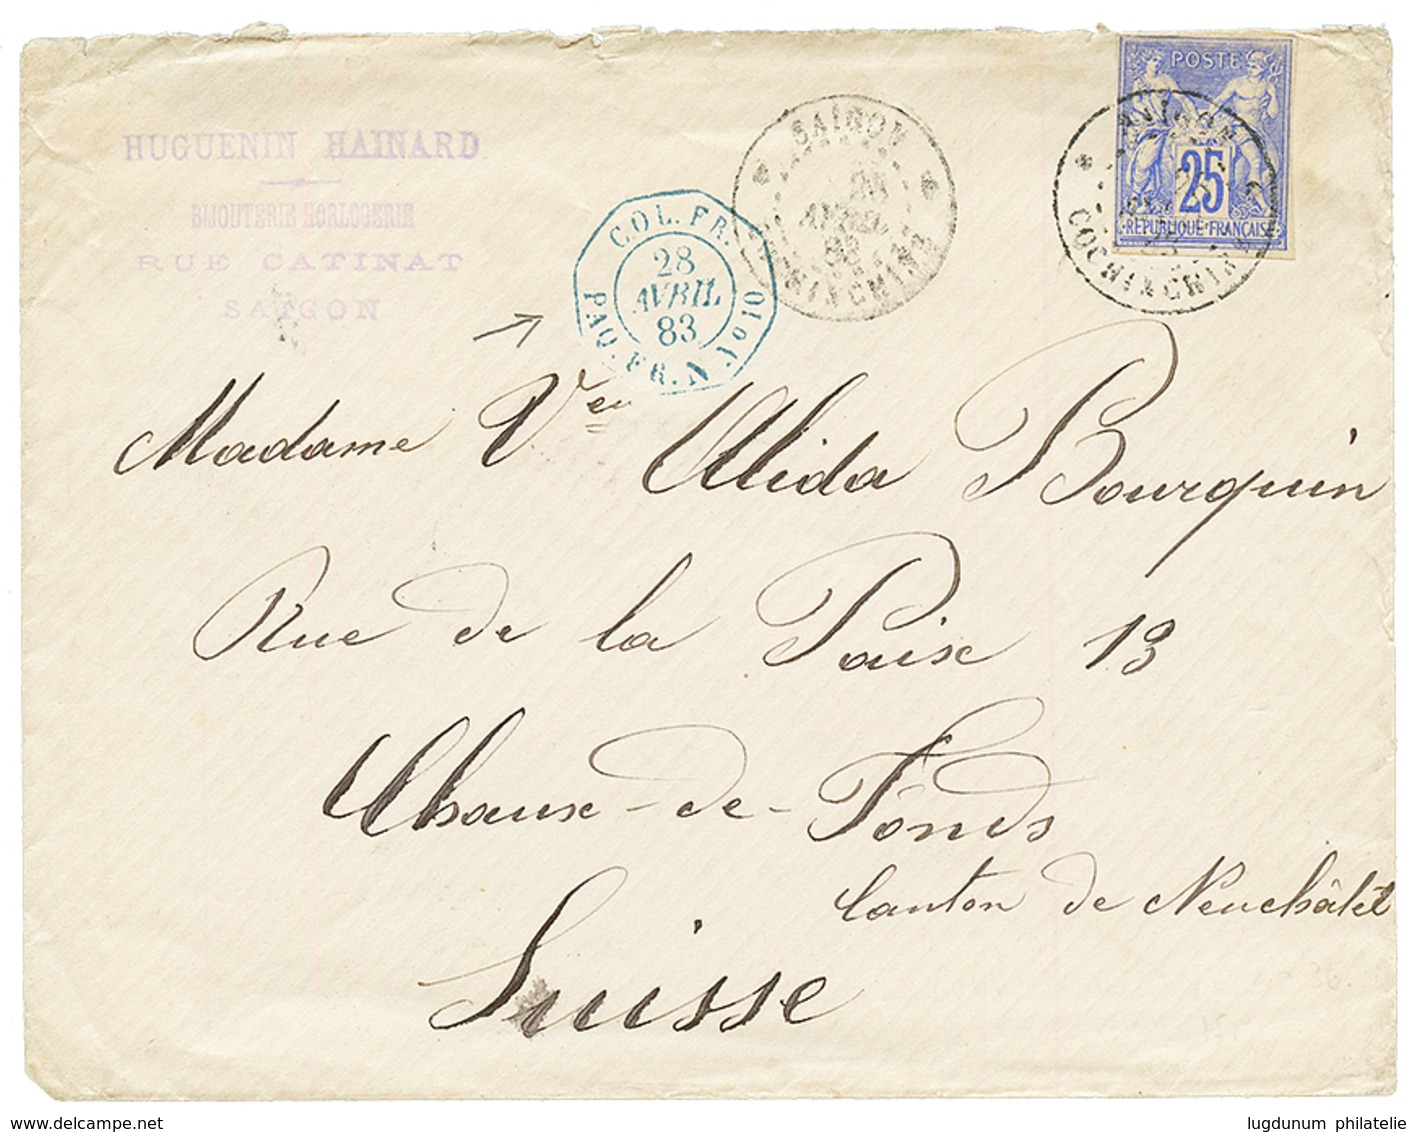 HUGUENIN HAINARD
BIJOUTERIE HORLOGERIE
RUE CATINAT
SAÏGON
COL. FR.
28
AVRIL
83
PAQ. FR. N
SAIGON
AVRIL
83
COCHINCHINE
POSTE
25
REPUBLIQUE FRANÇAISE
SAIGON
COCHINCHINE
Madame Veu Alida Bourquin
Rue de la Paix 13
Chaux-de-Fonds
Canton de Neuchâtel
Suisse
delcampe.net
lugdunum philatelie